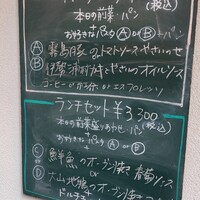 (税込)
本日の前菜・パン
+
お好きなパスタ Ⓐ or Ⓑ
Ⓐ 霧島豚のトマトソースやさいのせ
Ⓑ 伊勢浦村カキとやさいのオイルソース
コーヒー か 紅茶 or エスプレッソ
ランチセット ¥3300
本日の前菜盛り合わせ・パン (税込)
+
お好きなパスタ Ⓐ or Ⓑ
+
Ⓒ 鮮魚のオーブン焼き 香草ソース
or
Ⓓ 大山地鶏のオーブン焼き
+
ドルチェ